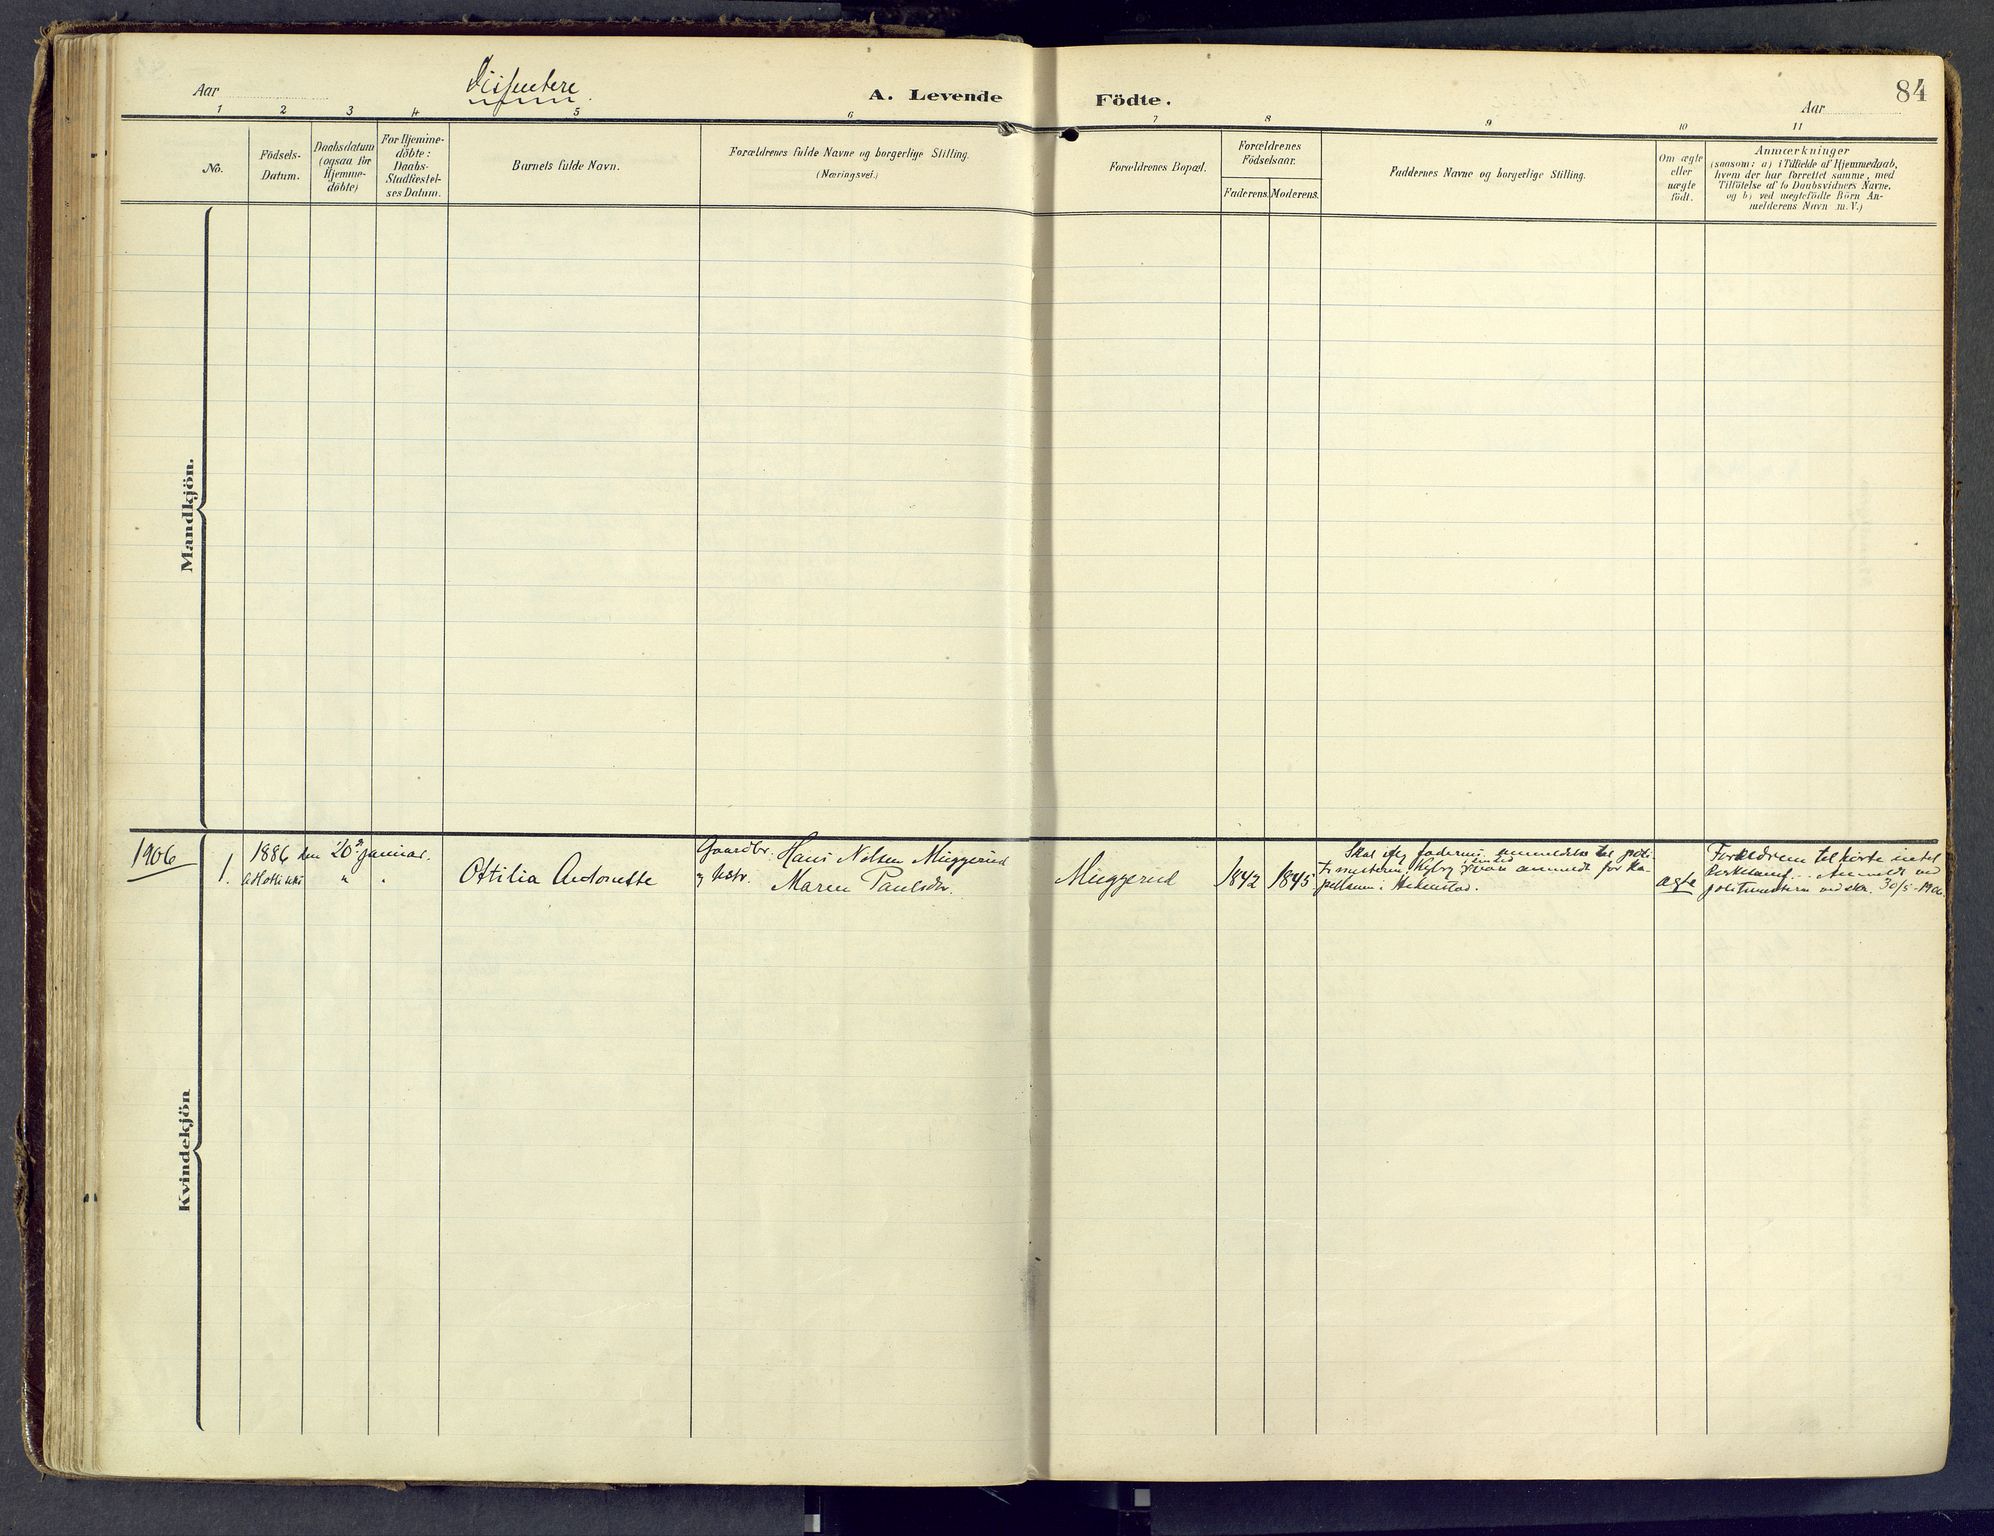 Aar
Dissentere
A. Levende Födte.
Aar
84
1 2 3 4 5 6 7 8 9 10 11
No.
Födsels-
Datum.
Daabsdatum
(ogsaa för
Hjemme-
döbte)
For Hjemme-
döbte:
Daabs-
Stadfæstel-
ses Datum.
Barnets fulde Navn.
Forældrenes fulde Navne og borgerlige Stilling.
(Næringsvei.)
Forældrenes Bopæl.
Forældrenes
Födselsaar.
Faderens.
Moderens.
Faddernes Navne og borgerlige Stilling.
Om ægte
eller
uægte
födt.
Anmærkninger
(saasom: a) i Tilfælde af Hjemmedaab,
hvem der har forrettet samme, med
Tilföielse af to Daabsvidners Navne,
og b) ved uægtefödte Börn An-
melderens Navn m. V.)
Mandkjön.
Kvindekjön
1906
1.
1886 den 20 januar.
Ottilia Antonette
Gaardbr. Hans Nelsen Muggerud
og hstr. Maren Paulsdr.
Muggerud
1842
1845
Skal faderens anmeldelse til poli-
timesteren være anmeldt for ka-
pellanen i
ægte
Forældrene tilhörte intet
kirkesamf. Anmeldt ved
politimesteren ved skr. 30/5-1906.